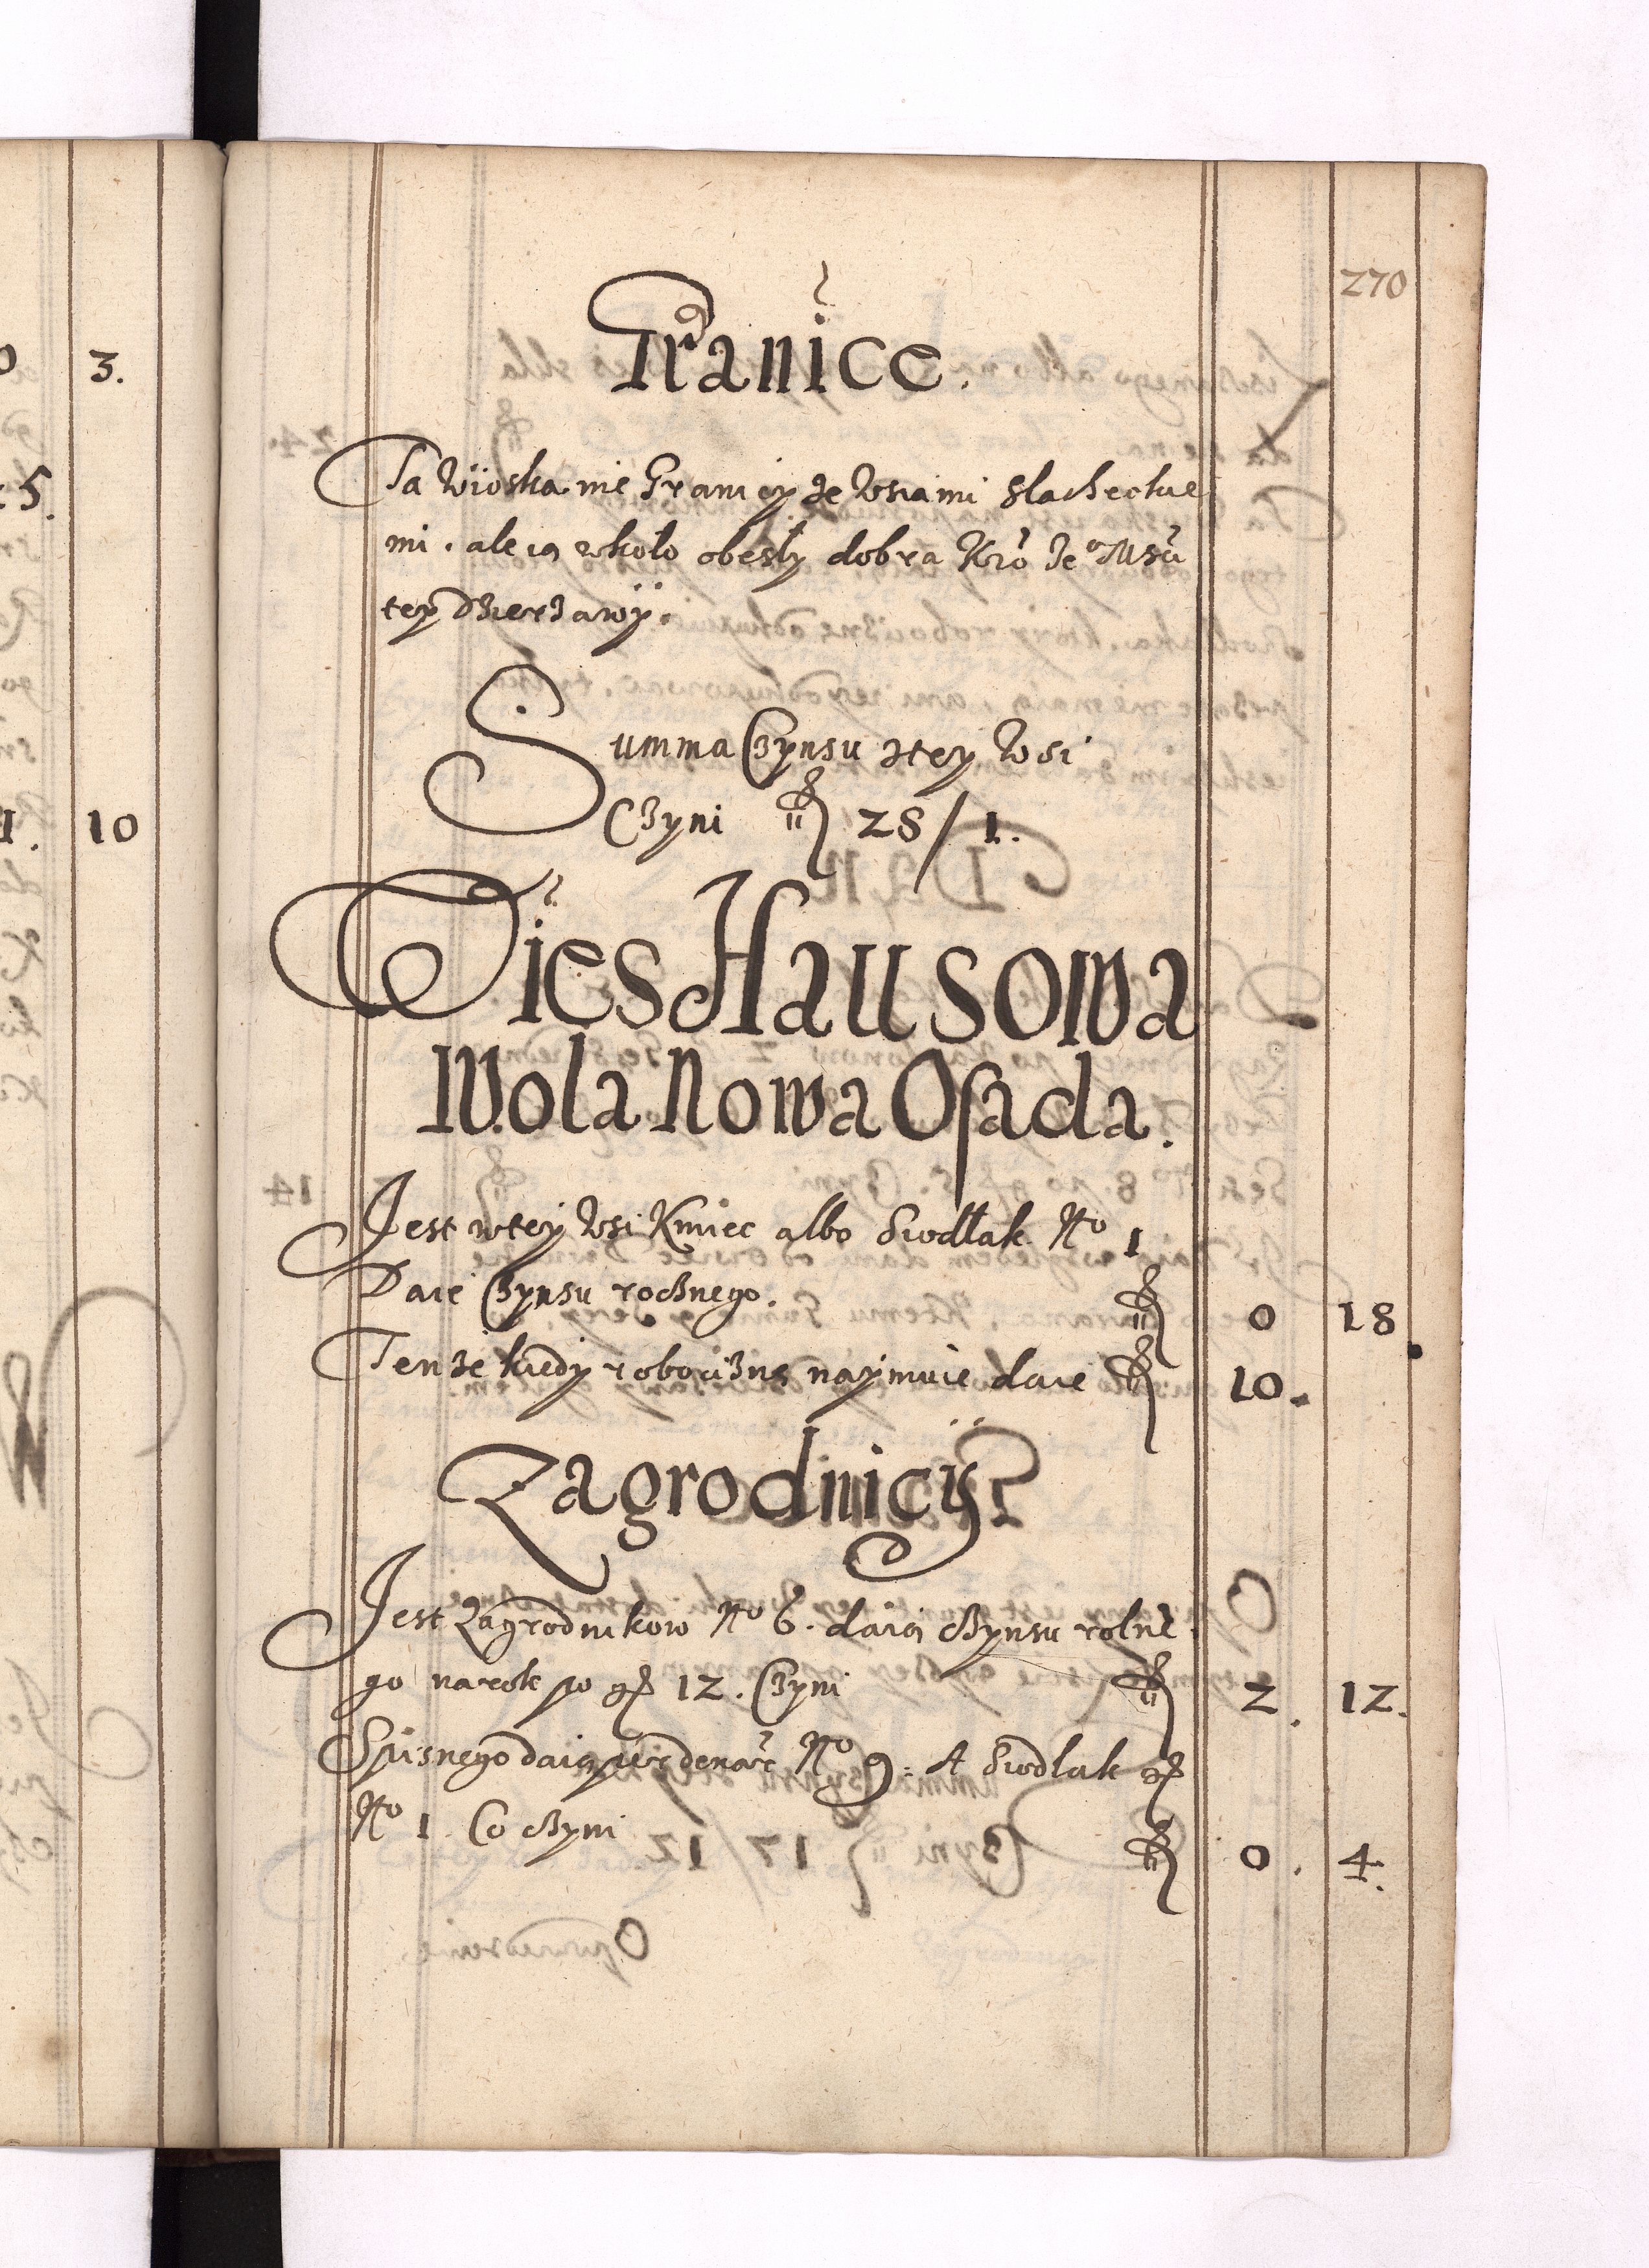 270
Granice.
Ta Wioska nie Graniczy ze Wsiami Slacheckie
mi. ale ią wkoło obeszły dobra Kro Je Mści
tey dzierzawÿ.
Summa Czynsu ztey Wsi
Czyni fl 28/1.
Ties Hausowa
Wola Nowa Osada.
Jest wtey Wsi Kmiec albo Siodłak No 1
Daie Czynsu rocznego. fl 0 18
Tenze kiedy robociznę naymuie daie fl 10.
Zagrodnicÿ
Jest Zagrodnikow No 6. daią czynsu rolne
go narok po gr 12. Czyni fl 2. 12.
Spisnego daią per denar No 9. A Siodlak gr
No 1 Co czyni fl 0. 4.
3.
5.
1. 10